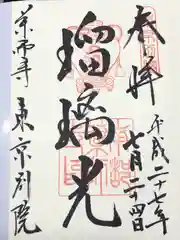 奉拝
平成二十七年
七月二十四日
瑠璃光
薬師寺
東京別院